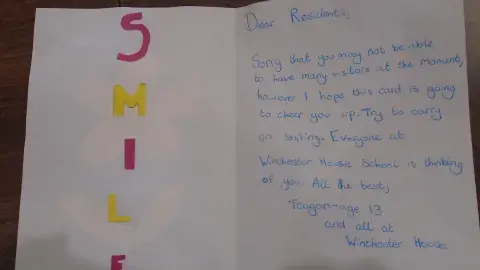 S
M
I
L
E
Dear Residents,
Sorry that you may not be able
to have many visitors at the moment,
however I hope this card is going
to cheer you up. Try to carry
on smiling. Everyone at
Winchester House School is thinking
of you. All the best,
Teagan-age 13
and all at
Winchester House